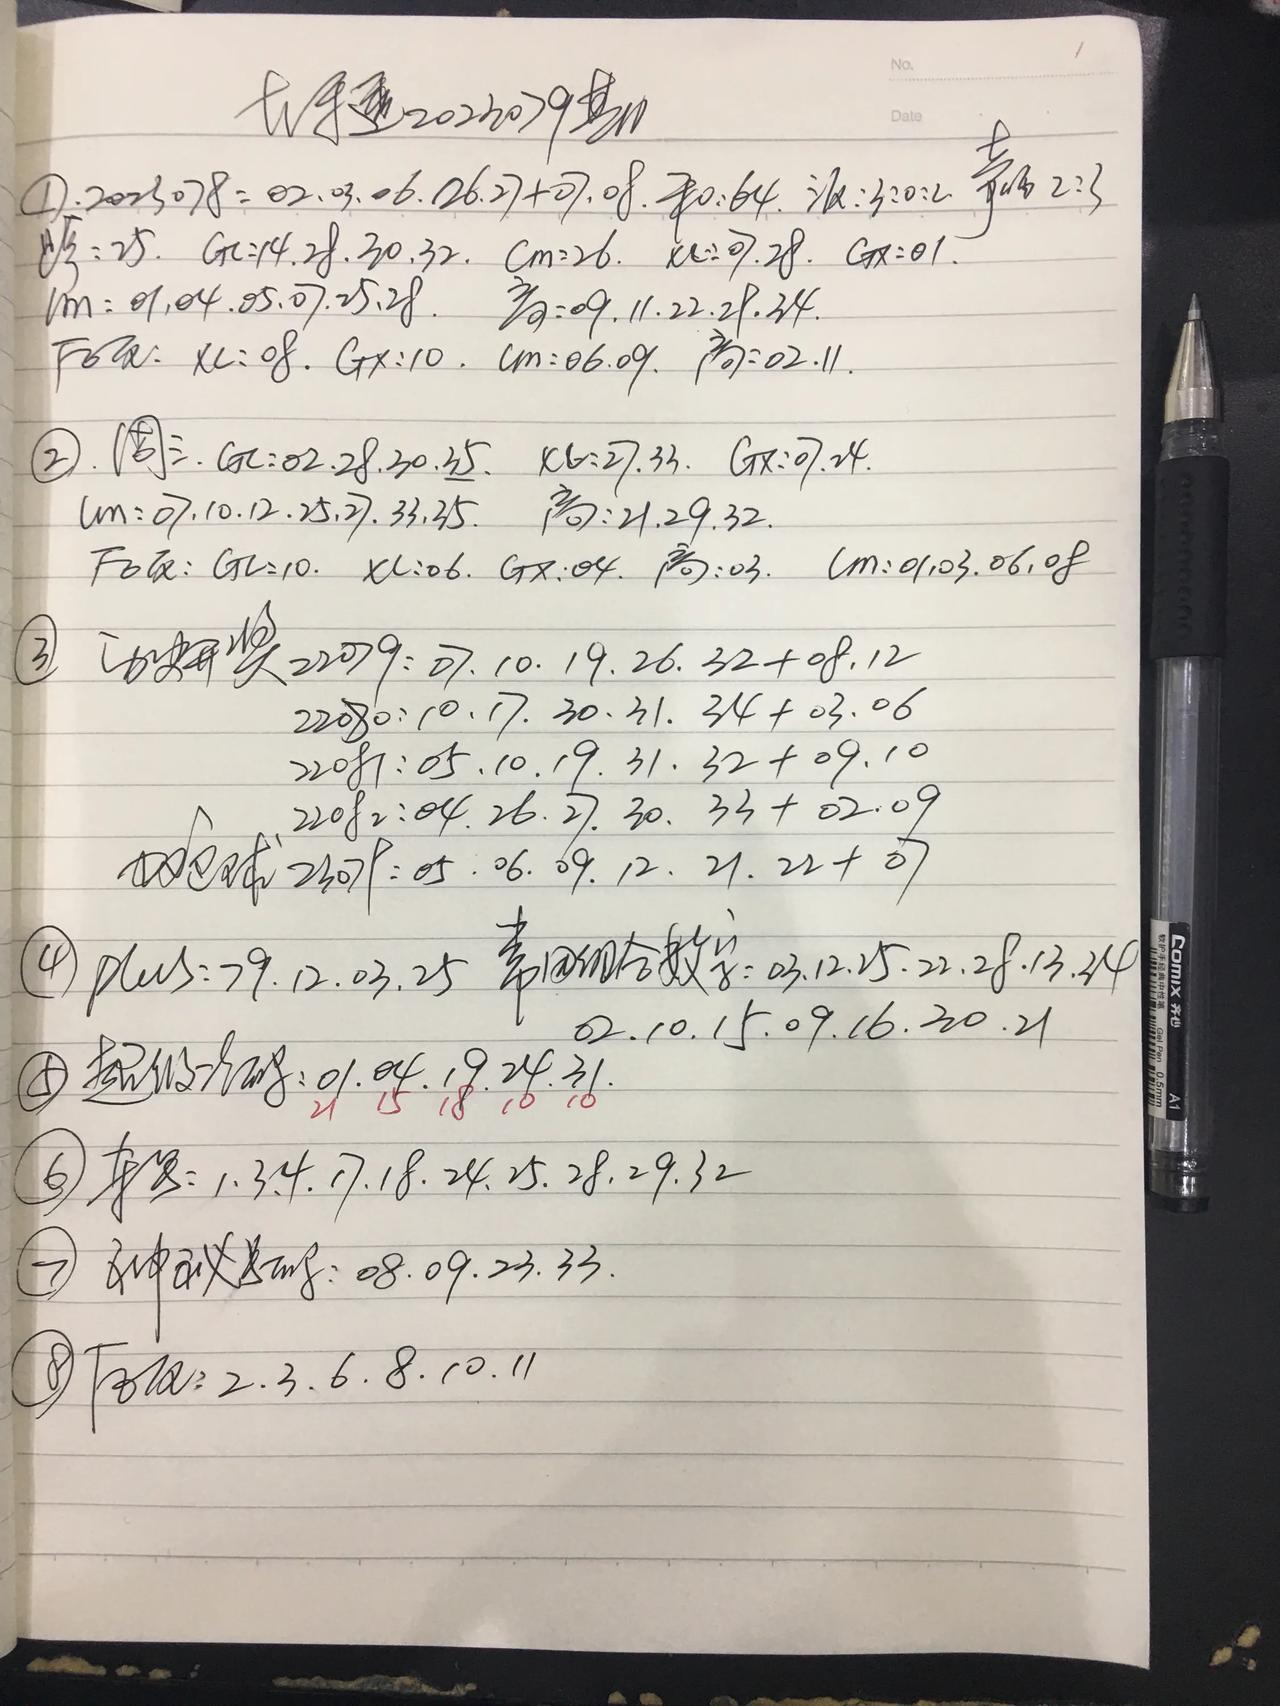 No.
1
Date
大乐透2023079期
①.2023078=02.03.06.26.27+07.08.和:64. 比:3:0:2 奇偶2:3
跨:25. GL=14.28.30.32. Cm=26. XL=07.28. GX=01.
Lm=01.04.05.07.25.28. 高=09.11.22.28.34.
下区: XL=08. GX:10. Lm=06.09. 高=02.11.
②.周三. GL=02.28.30.35. XL=27.33. GX:07.24.
Lm=07.10.12.25.27.33.35. 高:21.29.32.
下区: GL=10. XL:06. GX:04. 高:03. Lm=01.03.06.08
③ 历史开奖22079:07.10.19.26.32+08.12
22080:10.17.30.31.34+03.06
22081:05.10.19.31.32+09.10
22082:04.26.27.30.33+02.09
双色球23079:05.06.09.12.21.22+07
④ plus:79.12.03.25 常用组合数字:03.12.25.22.28.13.34
02.10.15.09.16.30.21
⑤ 超级冷码:01.04.19.24.31.
21 15 18 10 10
⑥ 1.3.4.17.18.24.25.28.29.32
⑦ 神秘码:08.09.23.33.
⑧ 下区:2.3.6.8.10.11
comix 齐心
Gel Pen 0.5mm
A1